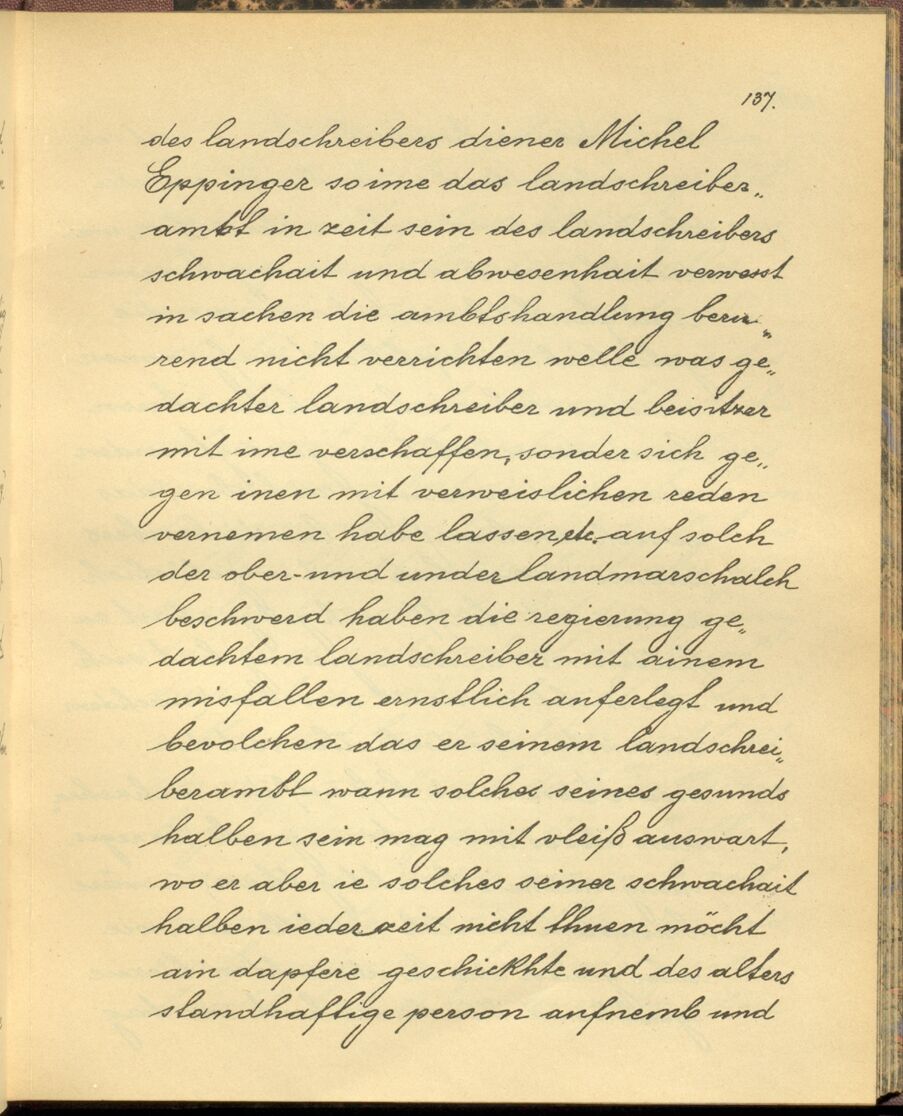 137.
des landschreibers diener Michel
Eppinger so ime das landschreiber„
ambt in zeit sein des landschreibers
schwachait und abwesenhait verwesst
in sachen die ambtshandlung beru„
rend nicht verrichten welle was ge„
dachter landschreiber und beisitzer
mit ime verschaffen, sonder sich ge„
gen inen mit verweislichen reden
vernemen habe lassen etc. auf solch
der ober- und underlandmarschalch
beschwerd haben die regierung ge„
dachtem landschreiber mit ainem
misfallen ernstlich auferlegt und
bevolchen das er seinem landschrei„
berambt wann solches seines gesunds
halben sein mag mit vleiß auswart,
wo er aber ie solches seiner schwachait
halben iederzeit nicht thuen möcht
ain dapfere geschickhte und des alters
standhaftige person aufnemb und